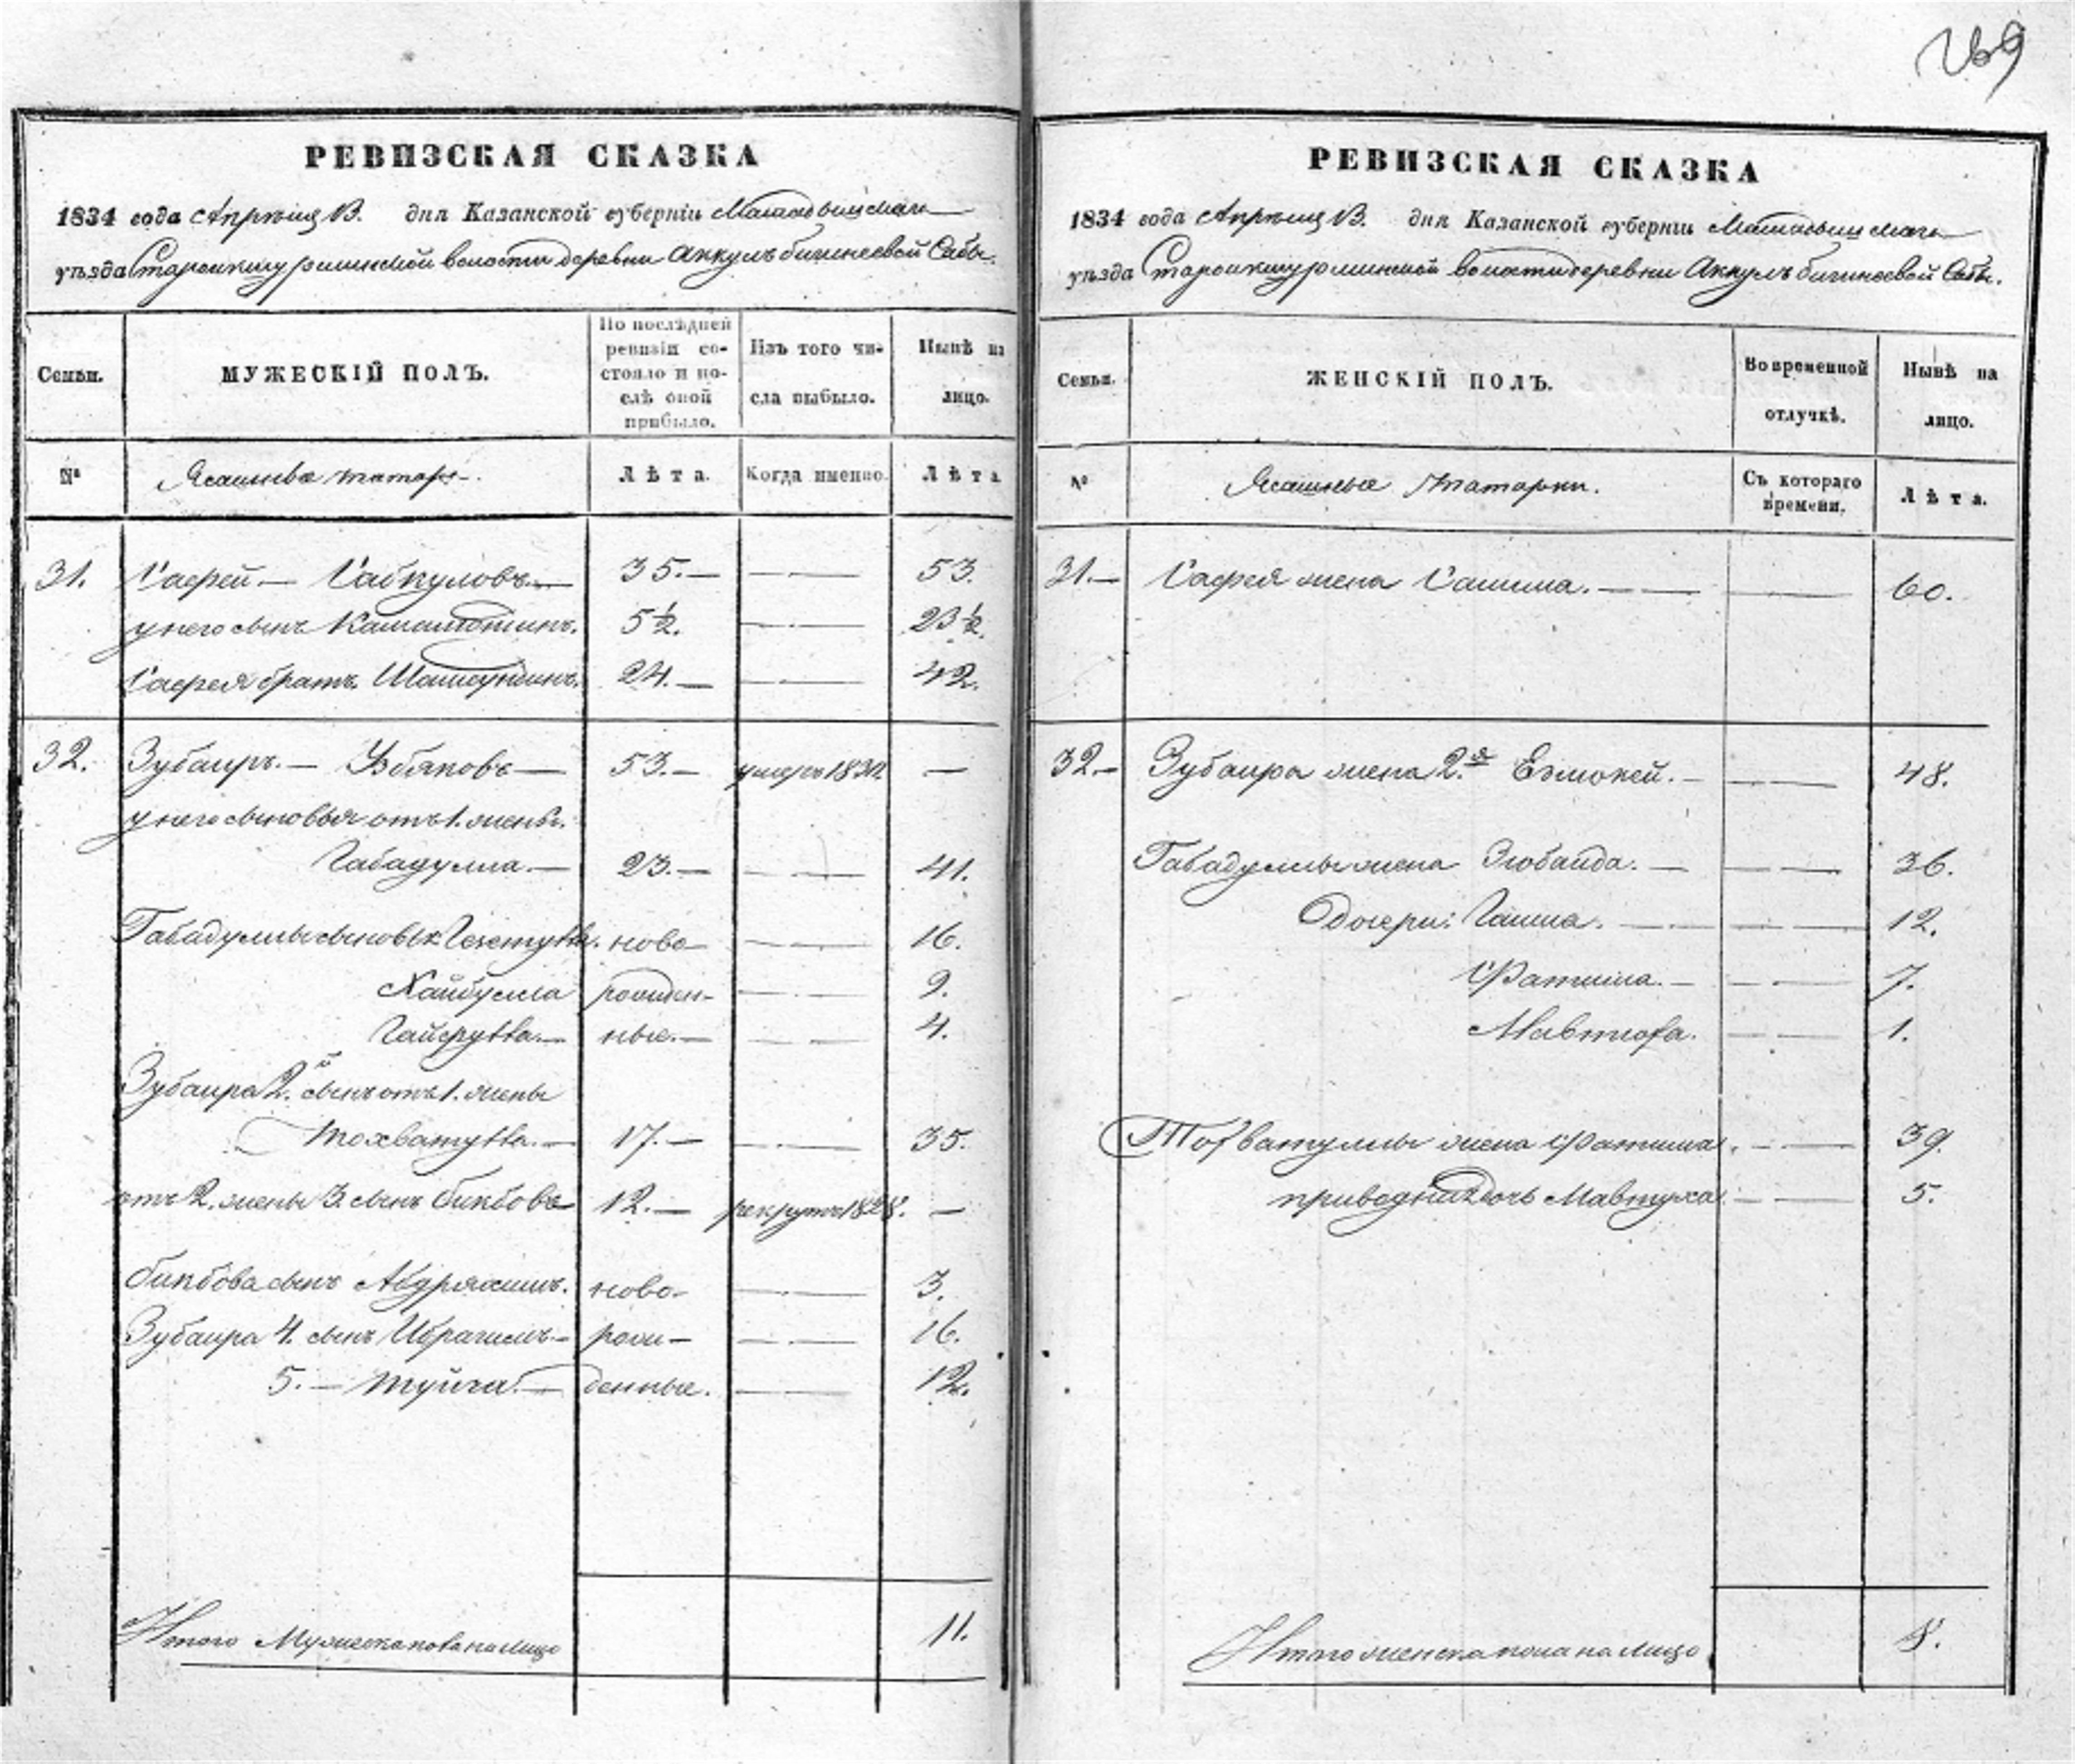 269
РЕВИЗСКАЯ СКАЗКА
1834 года Апрѣля 13. дня Казанской губерніи Мамадышскаго
уѣзда Старокишурминской волости деревни Аккулъ бигинеевой Сабы.
Семьи.
МУЖЕСКІЙ ПОЛЪ.
По послѣдней
ревизіи со-
стояло и по-
слѣ оной
прибыло.
Изъ того чи-
сла выбыло.
Нынѣ на
лицо.
№
Ясашные татары.
Лѣта.
Когда именно.
Лѣта
31. Сафей — Сабкуловъ — 35. — 53.
у него сынъ 5½. 23½.
Сафея братъ 24. — 42.
32. Зубаиръ — — 53. — умеръ 183
у него сыновья отъ 1. жены.
Габадулла. — 23. — 41.
Габадуллы сыновья ново- 16.
Хайбулла рожден- 9.
Гайфулла. — ные. — 4.
Зубаира 2.й сынъ отъ 1. жены
Тохватулла. — 17. — 35.
отъ 2. жены 3. сынъ бикбовъ 12. — рекрутъ 1828. —
бикбова сынъ Абдряхимъ. ново- 3.
Зубаира 4. сынъ Ибрагимъ — рож- 16.
5. — — денные. 12.
Итого Мужеска пола на лицо 11.
РЕВИЗСКАЯ СКАЗКА
1834 года Апрѣля 13. дня Казанской губерніи Мамадышскаго
уѣзда Старокишурминской волости деревни Аккулъ бигинеевой Сабы.
Семьи.
ЖЕНСКІЙ ПОЛЪ.
Во временной
отлучкѣ.
Нынѣ на
лицо.
№
Ясашные Татарки.
Съ котораго
времени.
Лѣта.
31. — Сафея жена Салима. — 60.
32. — Зубаира жена 2.я — 48.
Габадуллы жена Зюбаида. — 36.
Дочери: Гайша. — 12.
Фатима. — 7.
1.
Тохватуллы жена Фатима. 39.
приводная дочь Мавтуха 5.
Итого женска пола на лицо 8.